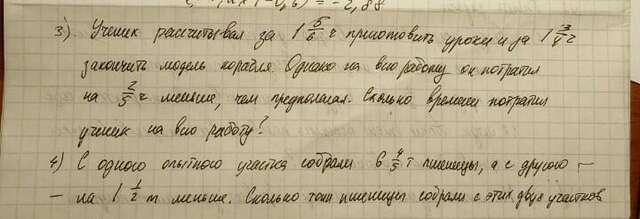 = -2,88
3) Ученик рассчитывал за 1 5/6 ч приготовить уроки и за 1 3/4 ч
закончить модель корабля. Однако на всю работу он потратил
на 2/5 ч меньше, чем предполагал. Сколько времени потратил
ученик на всю работу?
4) С одного опытного участка собрали 6 4/5 т пшеницы, а с другого –
– на 1 1/2 т меньше. Сколько тонн пшеницы собрали с этих двух участков